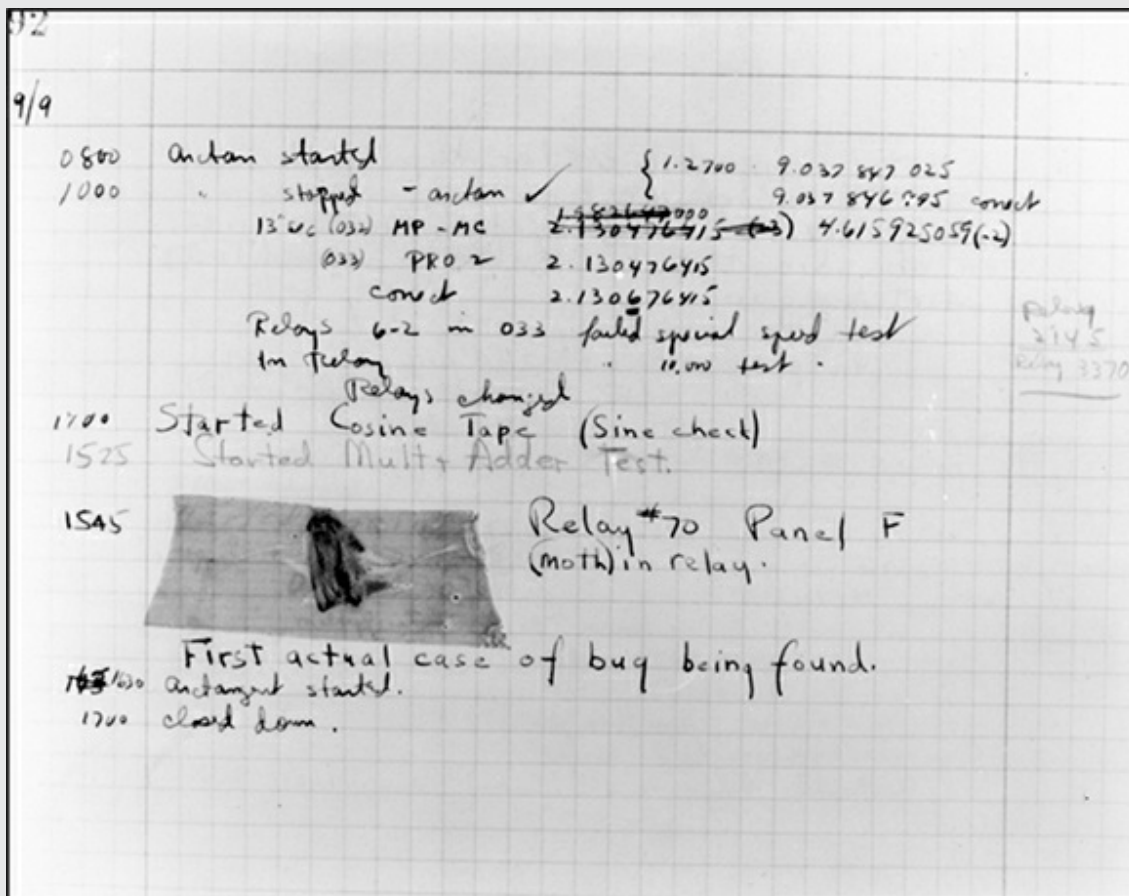 92
9/9
0800 arctan started { 1.2700 9.037 847 025
1000 " stopped - arctan ✓ 9.037 846 795 correct
13"uc (032) MP - MC 2.130476415 (-3) 4.615925059(-2)
(033) PRO 2 2.130476415
correct 2.130676415
Relays 6-2 in 033 failed special speed test
In Relay " 10,000 test .
Relays changed
Relay
2145
Relay 3370
1700 Started Cosine Tape (Sine check)
1525 Started Mult + Adder Test.
1545 Relay #70 Panel F
(moth) in relay.
First actual case of bug being found.
1630 arctangent started.
1700 closed down .